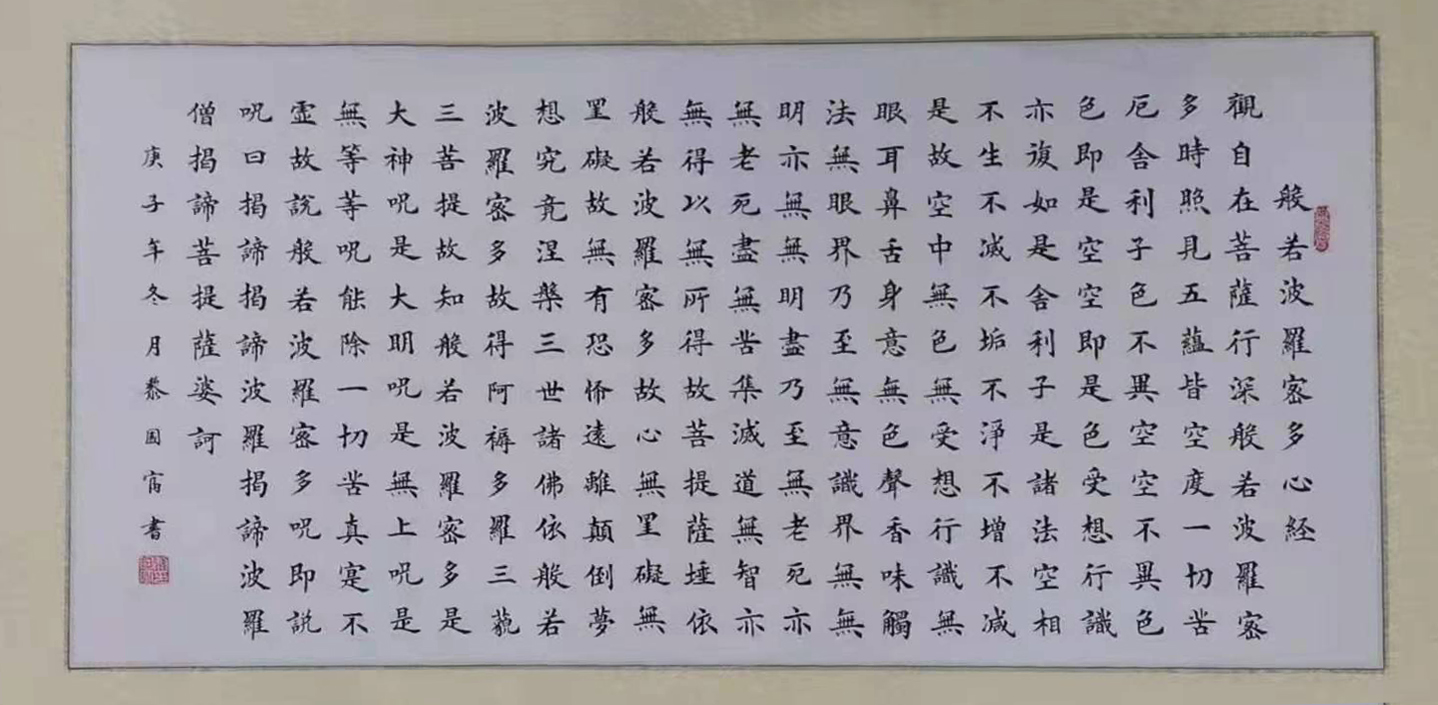 般若波羅密多心経
觀自在菩薩行深般若波羅密
多時照見五蘊皆空度一切苦
厄舍利子色不異空空不異色
色即是空空即是色受想行識
亦復如是舍利子是諸法空相
不生不滅不垢不淨不增不減
是故空中無色無受想行識無
眼耳鼻舌身意無色聲香味觸
法無眼界乃至無意識界無無
明亦無無明盡乃至無老死亦
無老死盡無苦集滅道無智亦
無得以無所得故菩提薩埵依
般若波羅密多故心無罣礙無
罣礙故無有恐怖遠離顛倒夢
想究竟涅槃三世諸佛依般若
波羅密多故得阿褥多羅三藐
三菩提故知般若波羅密多是
大神呪是大明呪是無上呪是
無等等呪能除一切苦真寔不
虛故說般若波羅密多呪即説
呪曰揭諦揭諦波羅揭諦波羅
僧揭諦菩提薩婆訶
庚子年冬月國甯書